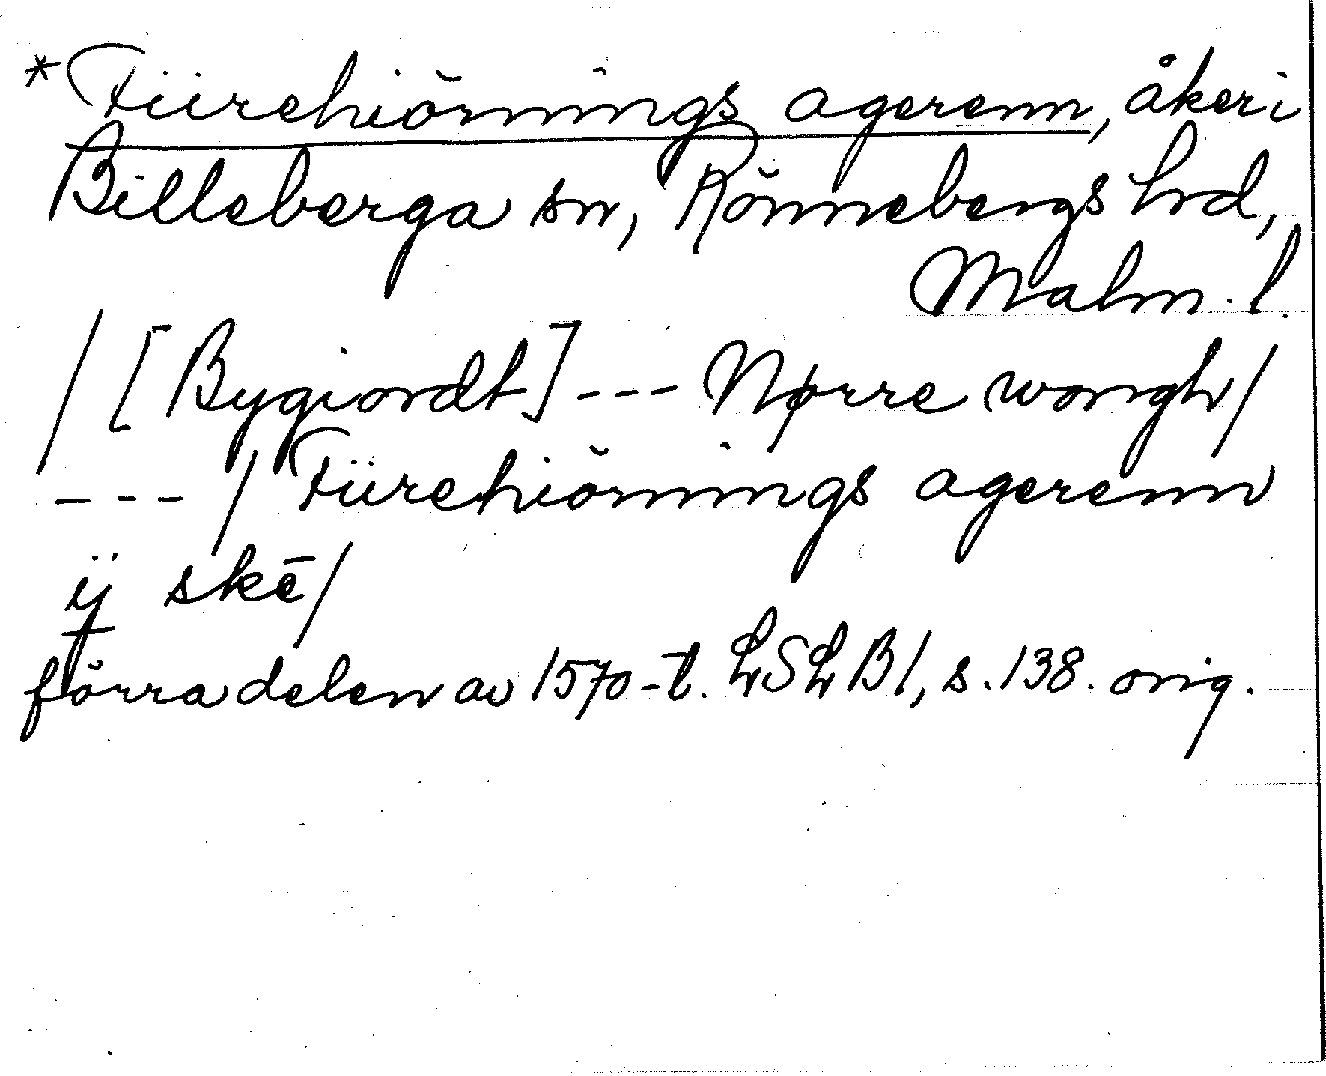 *Fiirehiörnings agerenn, åker i
Billeberga sn, Rönnebergs hd,
Malm. l.
/ [Bygiordt] --- Nørre wongh /
--- / Fiirehiörnings agerenn
ÿ skē /
förra delen av 1570-t. LSLB1, s. 138. orig.